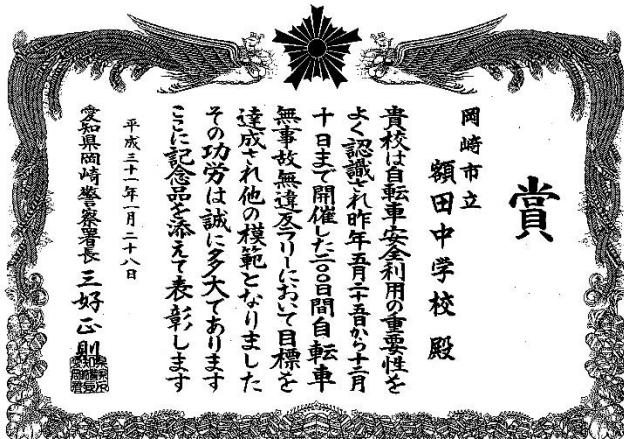 賞
岡崎市立
額田中学校 殿
貴校は自転車安全利用の重要性を
よく認識され昨年五月二十五日から十二月
十日まで開催した二〇〇日間自転車
無事故無違反ラリーにおいて目標を
達成され他の模範となりました
その功労は誠に多大であります
ここに記念品を添えて表彰します
平成三十一年一月二十八日
愛知県岡崎警察署長 三好正則